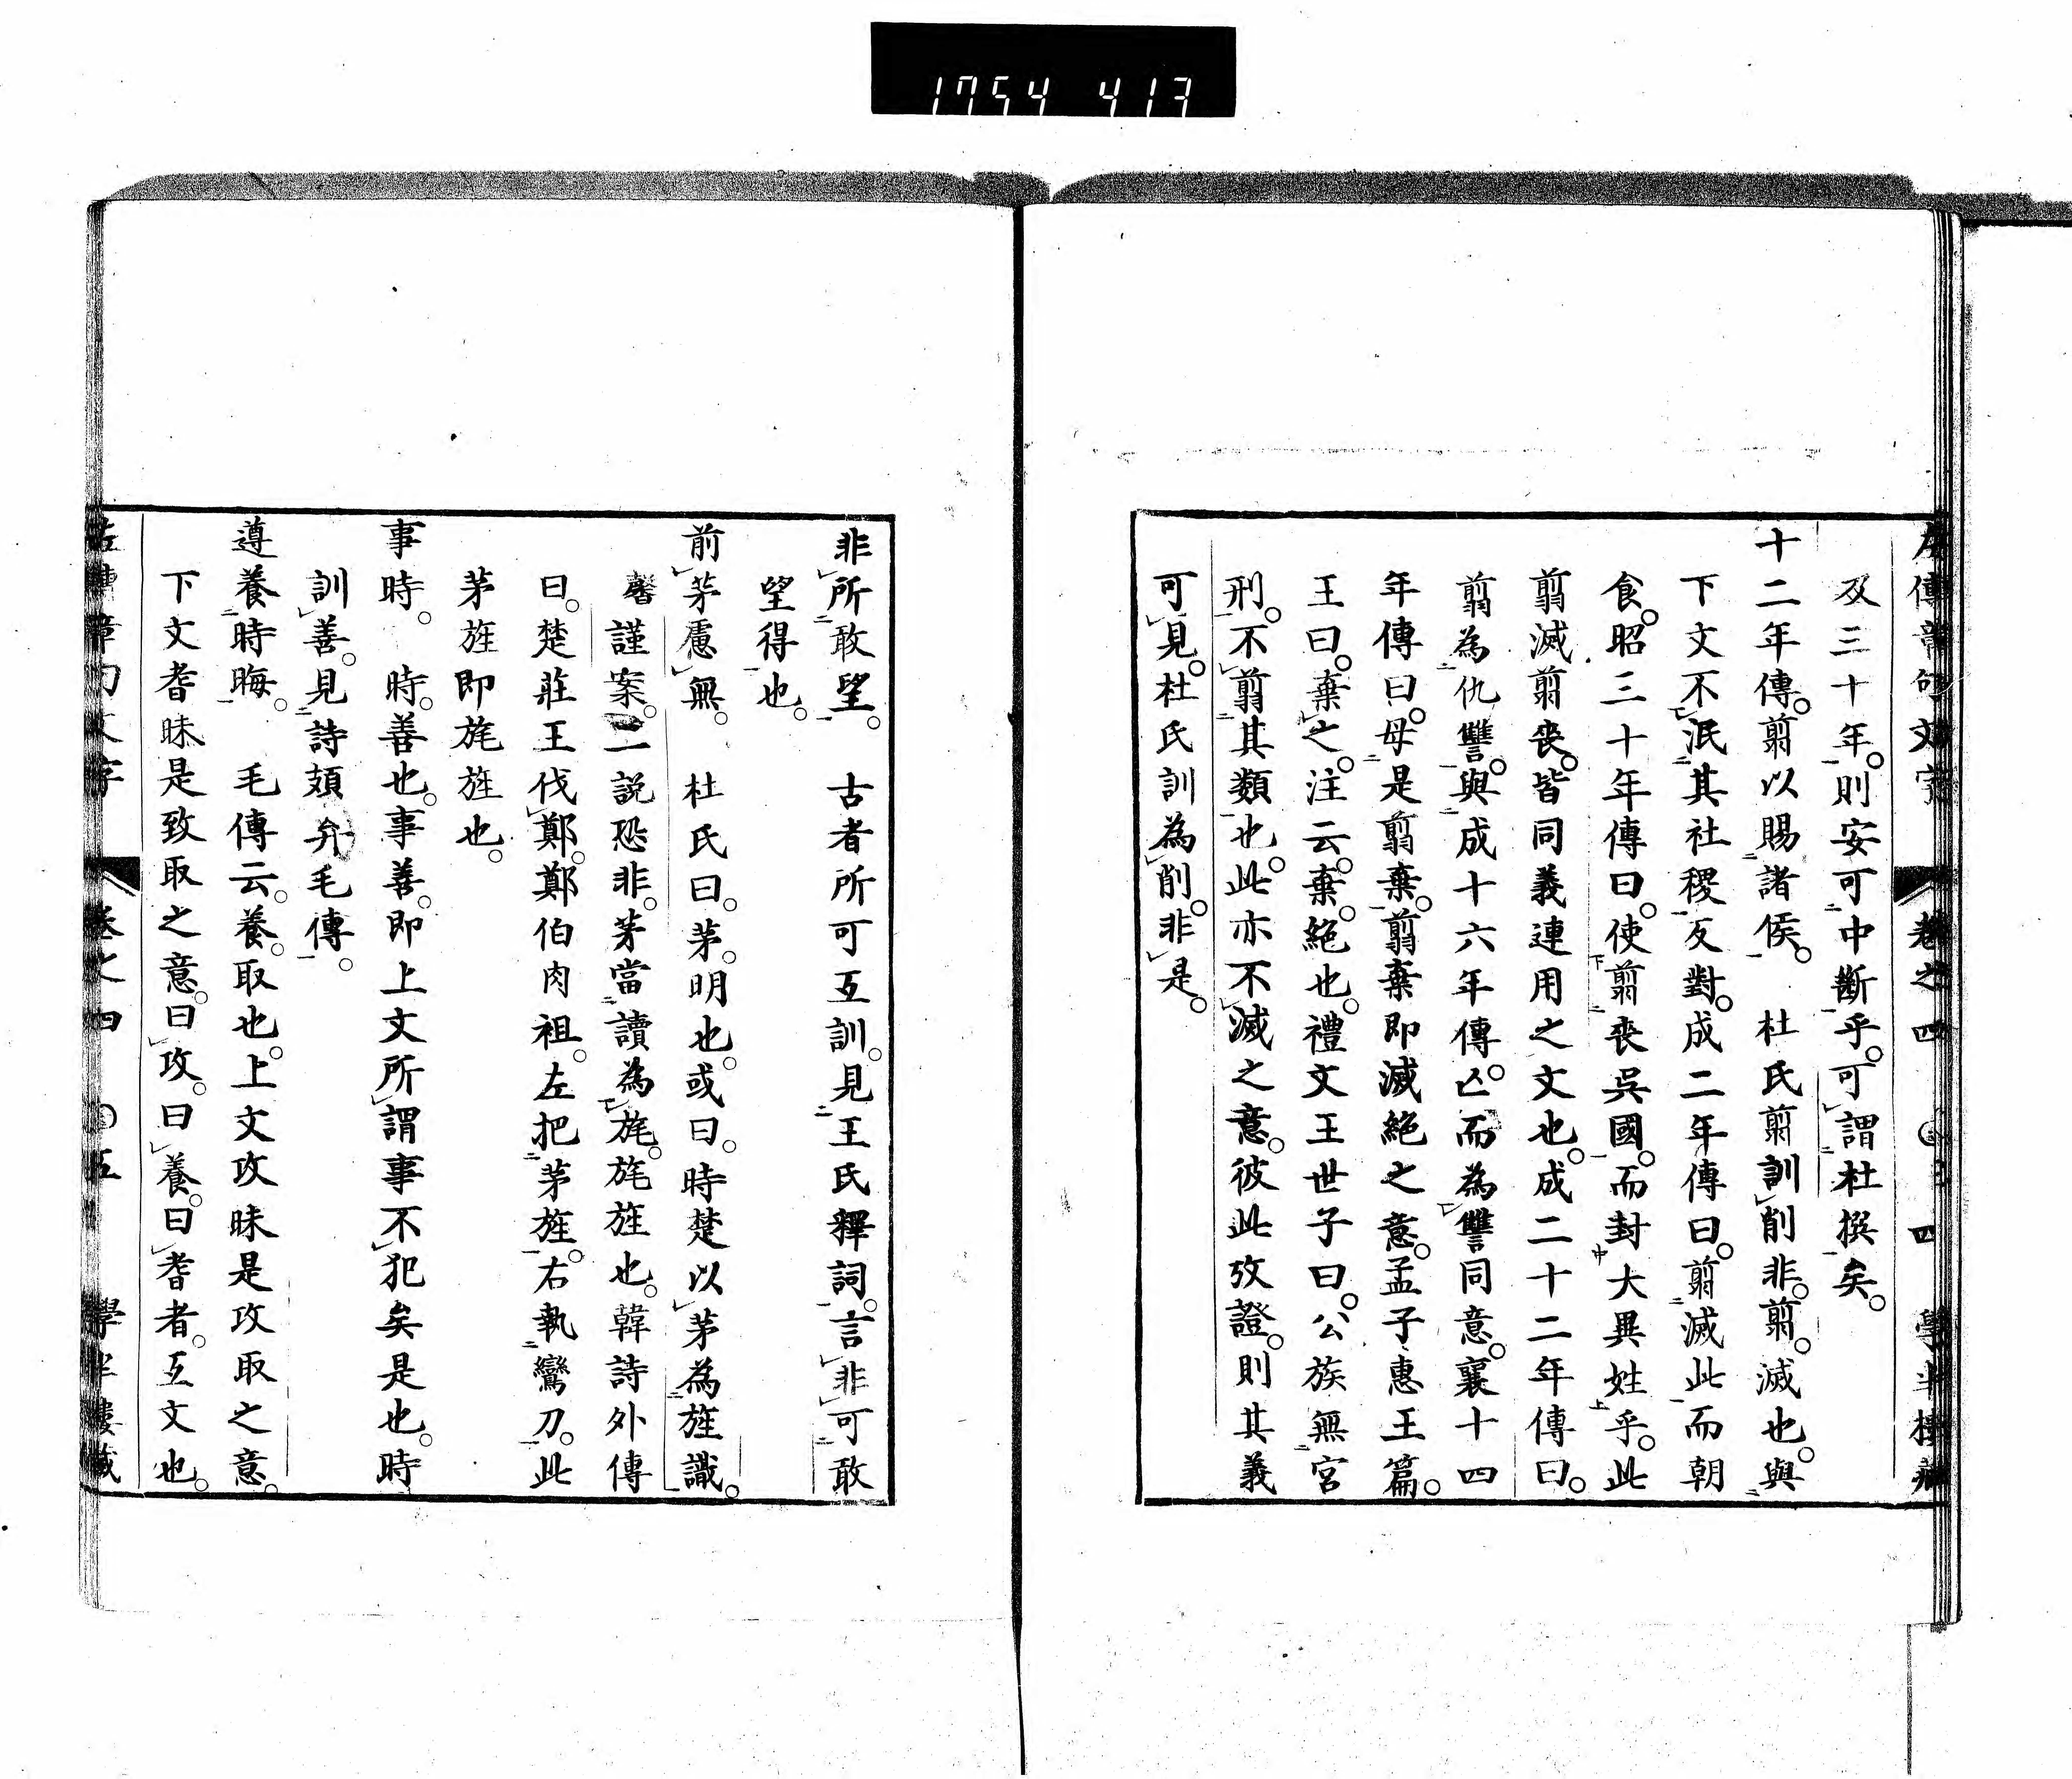 1754 413
左傳章句文字 卷之四 四 學半樓藏
及三十年。則安可中斷乎。可謂杜撰矣。
十二年傳。翦以賜諸侯。 杜氏翦訓削非。翦。滅也。與
下文不泯其社稷反對。成二年傳曰。翦滅此而朝
食。昭三十年傳曰。使翦喪吳國。而封大異姓乎。此
翦滅翦喪。皆同義連用之文也。成二十二年傳曰。
翦為仇讐。與成十六年傳。亡而為讐同意。襄十四
年傳曰。毋是翦棄。翦棄即滅絕之意。孟子惠王篇。
王曰。棄之。注云。棄。絕也。禮文王世子曰。公族無宮
刑。不翦其類也。此亦不滅之意。彼此攷證。則其義
可見。杜氏訓為削。非是。
非所敢望。 古者所可互訓。見王氏釋詞。言非可敢
望得也。
前茅慮無。 杜氏曰。茅。明也。或曰。時楚以茅為旌識。
馨謹案。二說恐非。茅當讀為旄。旄旌也。韓詩外傳
曰。楚莊王伐鄭。鄭伯肉袒。左把茅旌。右執鸞刀。此
茅旌即旄旌也。
事時。 時。善也。事善。即上文所謂事不犯矣是也。時
訓善。見詩頍弁毛傳。
遵養時晦。 毛傳云。養。取也。上文攻昧是攻取之意。
下文耆昧是致取之意。曰攻。曰養。曰耆者。互文也。
左傳章句文字 卷之四 五 學半樓藏